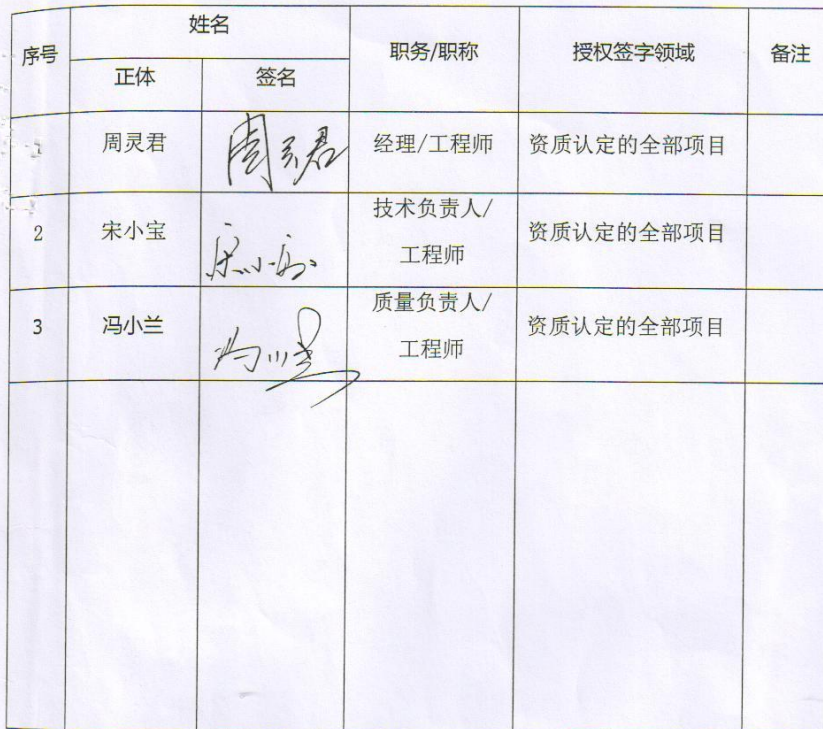 序号
姓名
正体
签名
职务/职称
授权签字领域
备注
1
周灵君
周灵君
经理/工程师
资质认定的全部项目
2
宋小宝
宋小宝
技术负责人/
工程师
资质认定的全部项目
3
冯小兰
冯小兰
质量负责人/
工程师
资质认定的全部项目